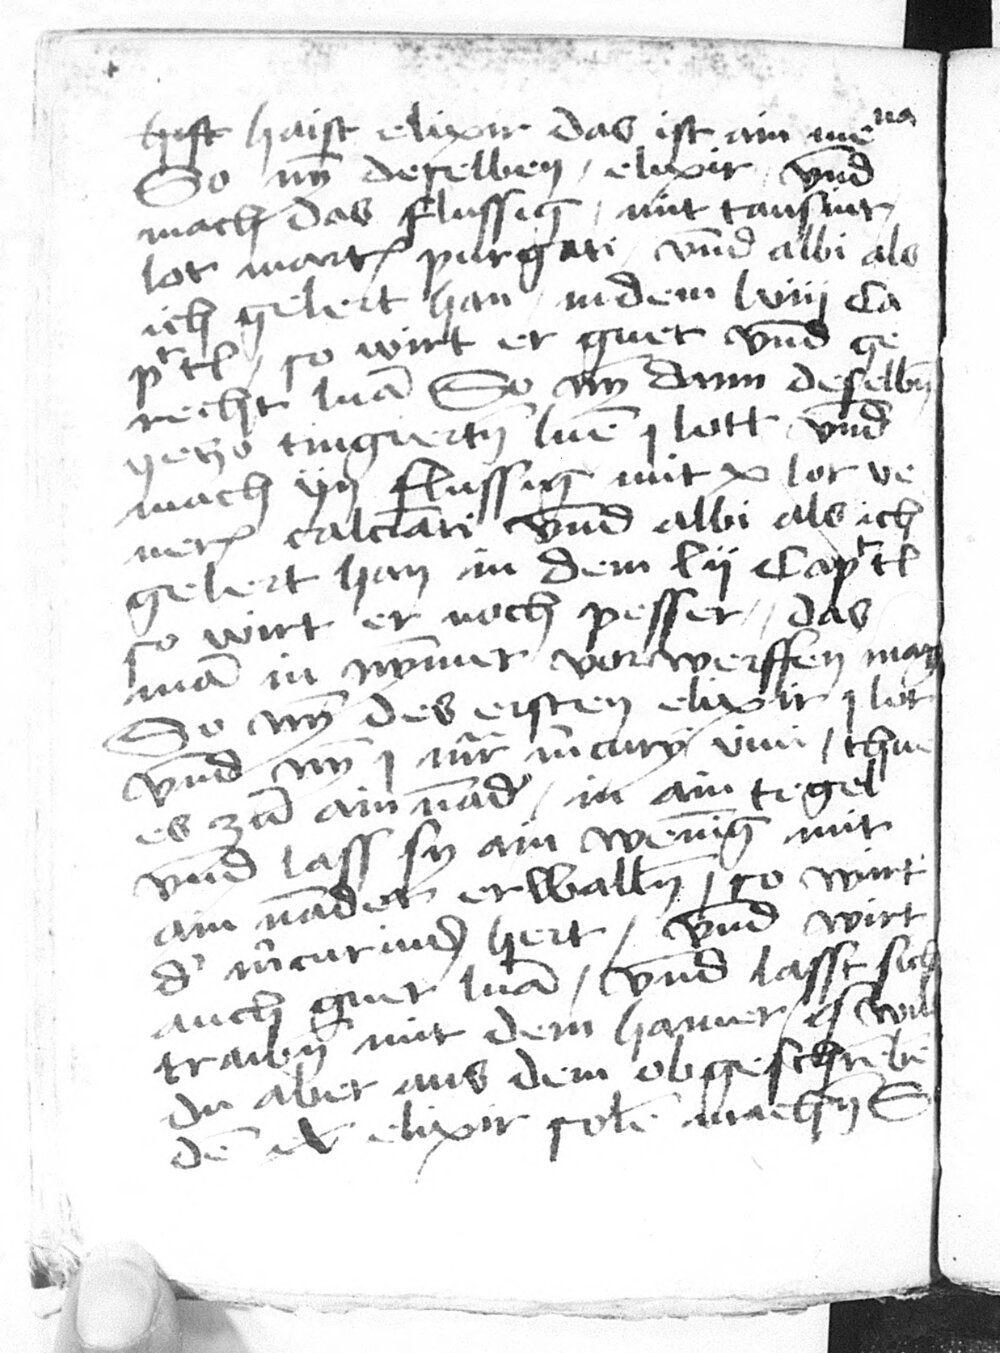 haist elixir das ist ain me᷑ na
So ny̅ deselben / elixir / vnd
mach das flussig / mit tausint /
lot mart℟ purgati / vnd albi als
ich gelert han / indem lviij Ca
pᵗtl / so wirt er guet vnd ge
recht lua̅ So ny̅ dann deselbn̅
yetzo tingiertn̅ lune̅ j lott vnd
mach yn flussig mit x lot ve
ner℟ calcinati vnd albi als ich
gelert han in dem lij Capᵗtl
so wirt er noch pesser // das
ma̅ in ny̅mer vorwerffen mag
So ny̅ des ersten elixir j lot
vnnd ny̅ j m̅r m̅cury vivi / thue
es zu̅ ain nad' / in ain tegel
vnnd lass sy ain wenig mit
ain nader erwalln̅ / so wirt
d' m̅curius hert / vnd wirt
auch guet lua̅ / vnnd lasst sich
traibn̅ mit dem hamer / wil
du aber aus dem obgeschribe̅
de̅ elixir sole̅ machn̅ S